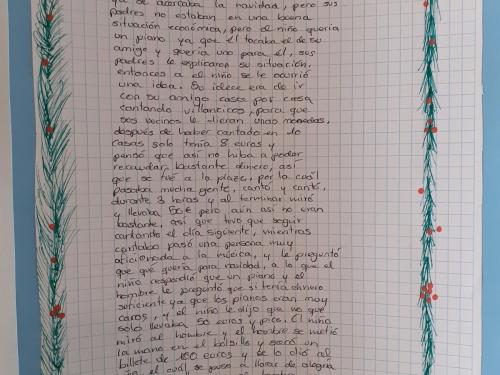 ya se acercaba la navidad, pero sus
padres no estaban en una buena
situación económica, pero el niño quería
un piano ya que él tocaba el de su
amigo y quería uno para él, sus
padres le explicaron su situación,
entonces a el niño se le ocurrió
una idea. Su idea era de ir
con su amigo casa por casa
cantando villancicos, para que
sus vecinos le dieran unas monedas,
después de haber cantado en 10
casas solo tenía 8 euros y
pensó que así no hiba a poder
recaudar bastante dinero, así
que se fue a la plaza, por la cuál
pasaba media gente, cantó y cantó,
durante 3 horas y al terminar miró
y llevaba 50€ pero aún así no eran
bastante, así que tuvo que seguir
cantando el día siguiente, mientras
cantaba pasó una persona muy
aficionada a la música, y le preguntó
que que quería para navidad, a lo que el
niño respondió que un piano y el
hombre le preguntó que si tenía dinero
suficiente ya que los pianos eran muy
caros, y el niño le dijo que no que
solo llevaba 50 euros y pico. El niño
miró al hombre y el hombre se metió
la mano en el bolsillo y sacó un
billete de 100 euros y se lo dió al
el cuál, se puso a llorar de alegría